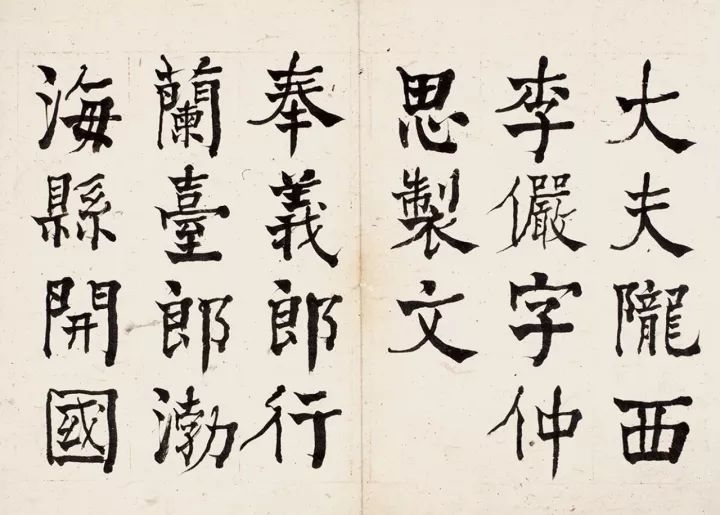 大夫隴西
李儼字仲
思製文
奉義郎行
蘭臺郎渤
海縣開國